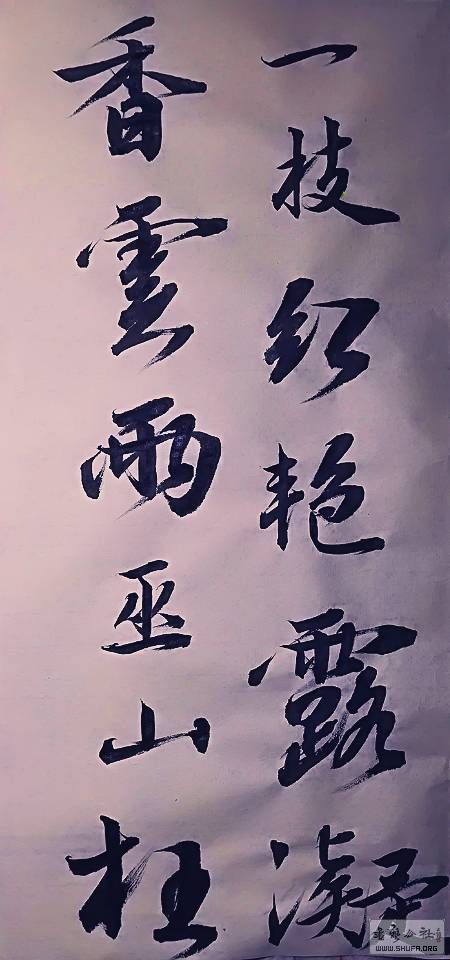 一枝红艳露凝
香雲雨巫山枉
書法公社
WWW.SHUFA.ORG